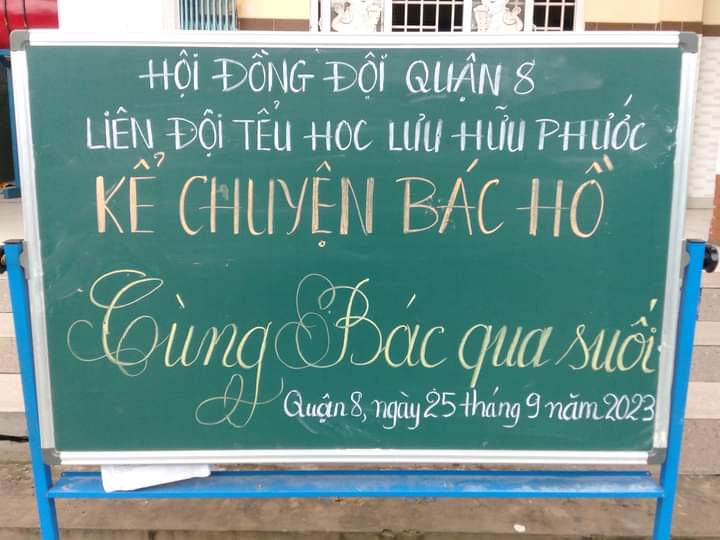 HỘI ĐỒNG ĐỘI QUẬN 8
LIÊN ĐỘI TỂU HOC LƯU HỮU PHƯỚC
KỂ CHUYỆN BÁC HỒ
Cùng Bác qua suối
Quận 8, ngày 25 tháng 9 năm 2023